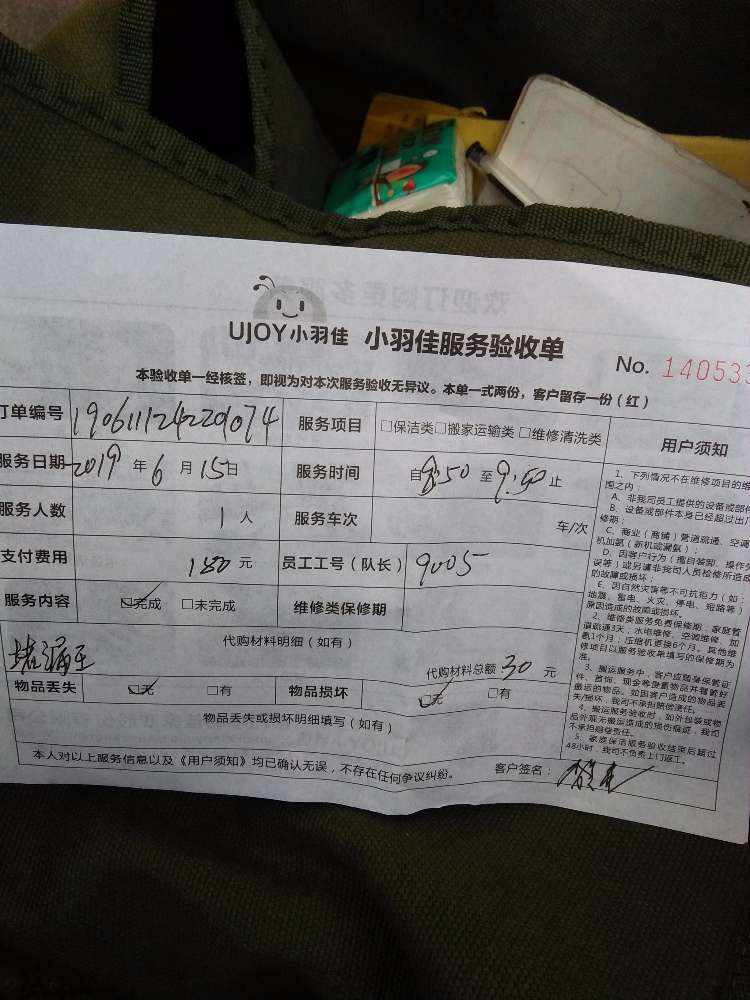 UJOY小羽佳 小羽佳服务验收单
No. 140533
本验收单一经核签，即视为对本次服务验收无异议。本单一式两份，客户留存一份（红）
订单编号 190611124220074 服务项目 □保洁类□搬家运输类 □维修清洗类
服务日期 2019 年 6 月 15 日 服务时间 自 8:50 至 9:50 止
服务人数 1 人 服务车次 车/次
支付费用 180 元 员工工号（队长） 9005
服务内容 ☑完成 □未完成 维修类保修期
代购材料明细（如有）
堵漏王 代购材料总额 30 元
物品丢失 ☑无 □有 物品损坏 ☑无 □有
物品丢失或损坏明细填写（如有）
本人对以上服务信息以及《用户须知》均已确认无误，不存在任何争议纠纷。 客户签名：
用户须知
1、下列情况不在维修项目的维
围之内：
A、非我司员工提供的设备或部件
B、设备或部件本身已经超过出厂
修期；
C、商业（商铺）管道疏通、空调
机加氨（新机或漏氨）；
D、因客户行为（擅自装卸、操作失
误等）或另请非我司人员检修所造成
的故障或损坏；
E、因自然灾害等不可抗拒力（如：
地震、雷电、火灾、停电、短路等）
原因造成的故障或损坏。
2、维修类服务免费保修期：家庭管
道疏通3天；水电维修、空调维修、加
氨1个月；压缩机更换6个月。其他维
修项目以服务验收单填写的保修期为
准。
3、搬运服务中，客户应随身保管证
件、首饰、现金等贵重物品并打包好
搬运的物品。如因客户造成的物品丢
失/损坏，我司不承担赔偿责任。
4、搬运服务验收时，如外包装或物
品外观无搬运造成的损伤痕迹，我司
不承担赔偿责任。
5、家庭保洁服务验收结束后超过
48小时，我司不负责上门返工。